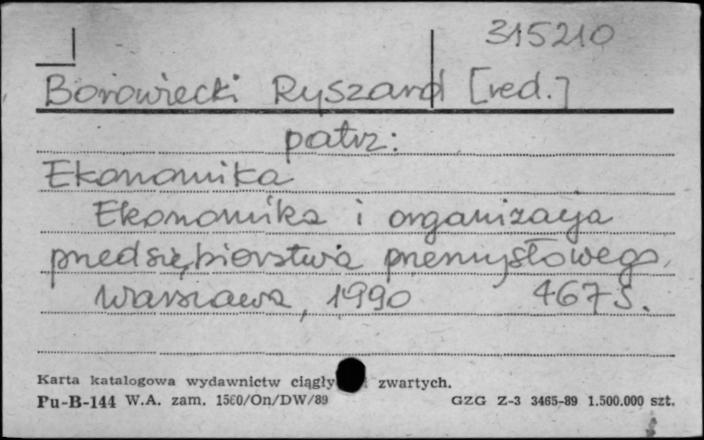 315210
Borowiecki Ryszard [red.]
patrz:
Ekonomika
Ekonomika i organizacja
przedsiębiorstwa przemysłowego.
Warszawa, 1990 467 s.
Karta katalogowa wydawnictw ciągły zwartych.
Pu-B-144 W.A. zam. 1560/On/DW/89 GZG Z-3 3465-89 1.500.000 szt.